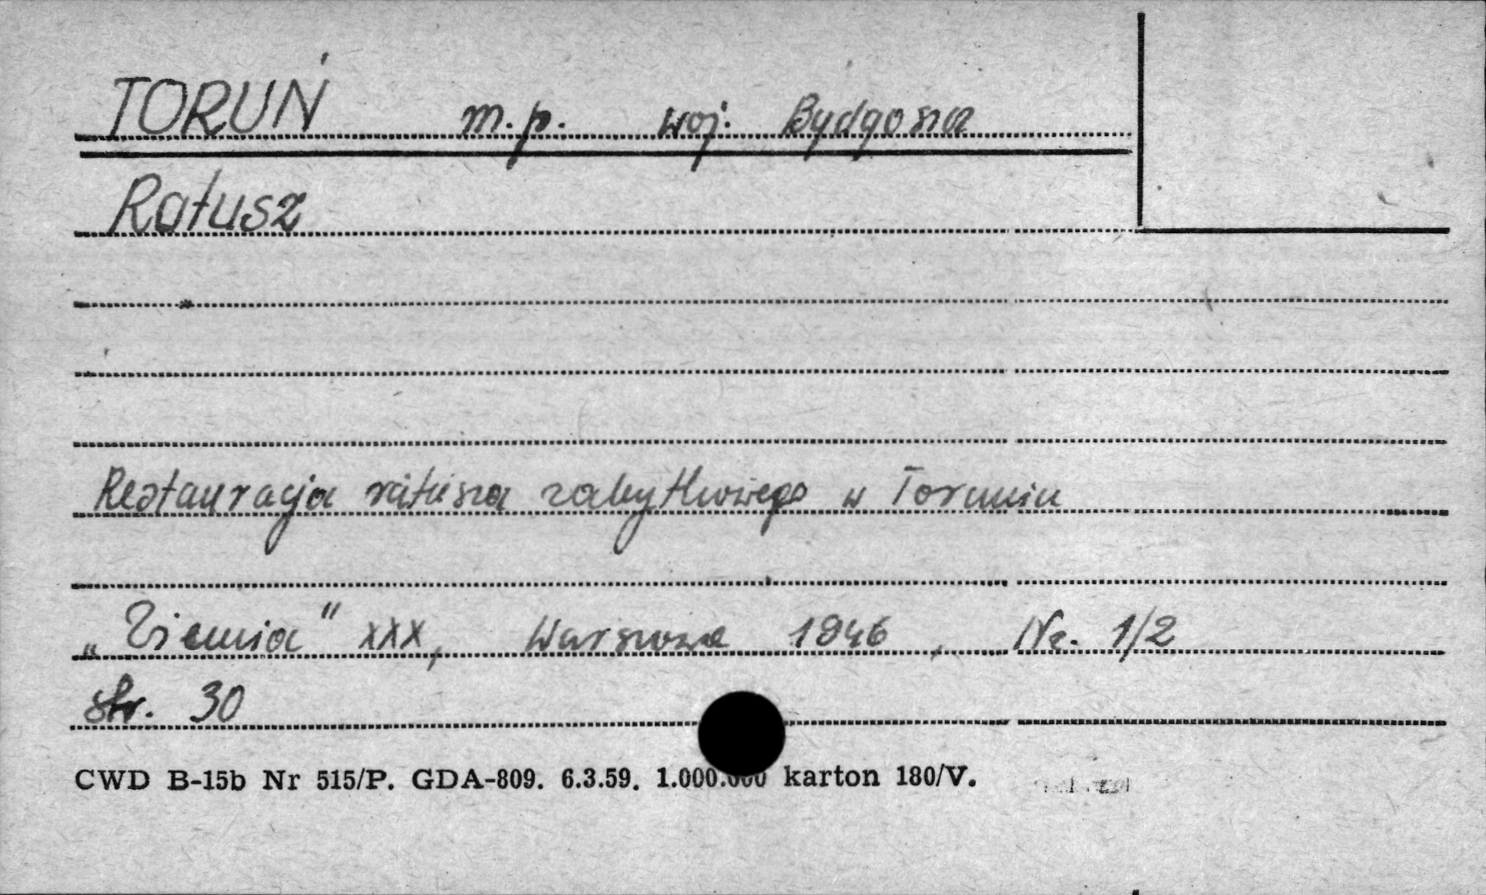 TORUŃ m.p. woj. Bydgoszcz
Ratusz
Restauracja ratusza zabytkowego w Toruniu
„Ziemia” XXX, Warszawa 1946, Nr. 1/2
str. 30
CWD B-15b Nr 515/P. GDA-809. 6.3.59. 1.000.000 karton 180/V.